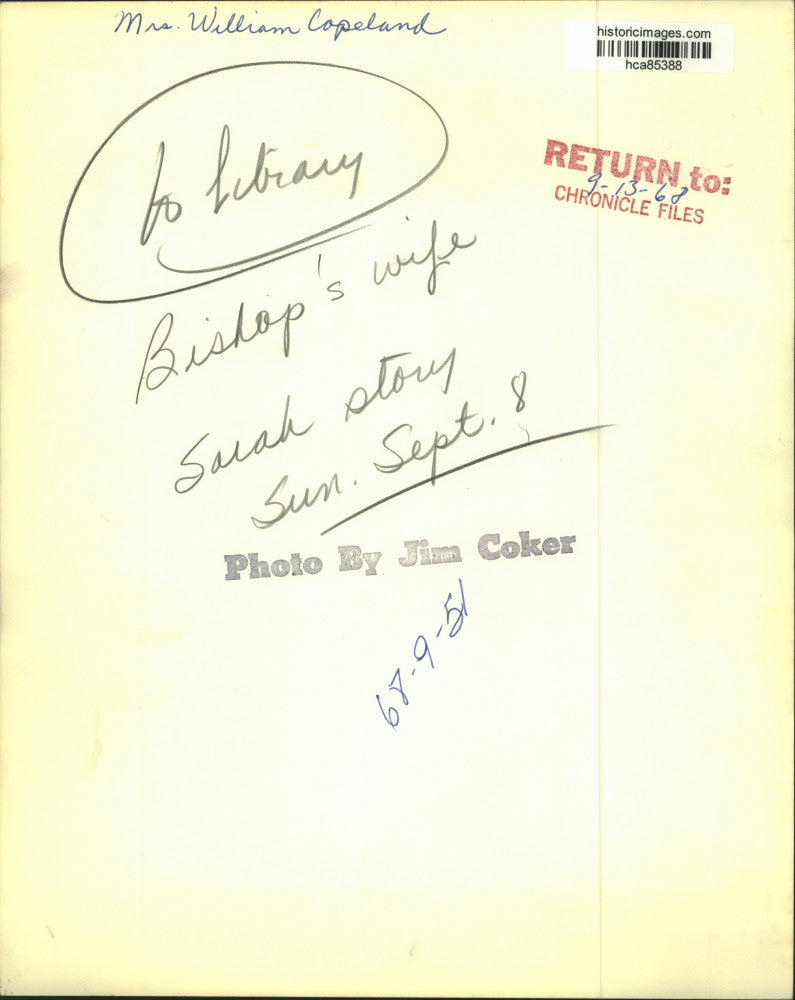 Mrs. William Copeland
historicimages.com
hca85388
RETURN to:
9-13-68
CHRONICLE FILES
to library
Bishop's wife
Sarah story
Sun. Sept. 8
Photo By Jim Coker
68-9-51